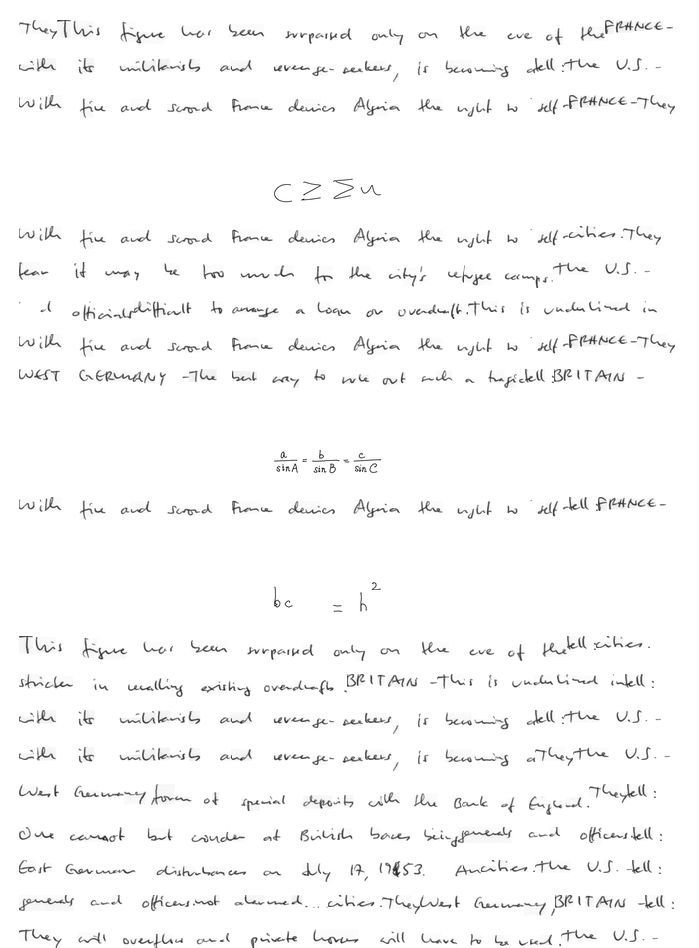 They This figure has been surpassed only on the eve of the FRANCE -
with its militarists and revenge-seekers, is becoming a tell : the U.S. -
With fire and sword France denies Algeria the right to self- FRANCE - They
C ≥ Σ n
With fire and sword France denies Algeria the right to self- cities. They
fear it may be too much for the city's refugee camps. the U.S. -
d officials difficult to arrange a loan or overdraft. This is underlined in
With fire and sword France denies Algeria the right to self- FRANCE - They
WEST GERMANY - The best way to rule out such a tragic tell : BRITAIN -
a/sin A = b/sin B = c/sin C
With fire and sword France denies Algeria the right to self- tell : FRANCE -
bc = h^2
This figure has been surpassed only on the eve of the tell : cities.
stricter in recalling existing overdrafts. BRITAIN - This is underlined in tell :
with its militarists and revenge-seekers, is becoming a tell : the U.S. -
with its militarists and revenge-seekers, is becoming a They the U.S. -
West Germany, form of special deposits with the Bank of England. They tell :
One cannot but wonder at British bases being generals and officers tell :
East German disturbances on July 17, 1953. An cities. the U.S. tell :
generals and officers. not alarmed... cities. They West Germany, BRITAIN - tell :
They will overflow and private homes will have to be used. the U.S. -